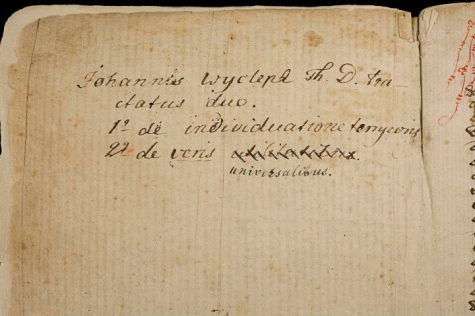 Johannis Wycleph Th. D. tra-
ctatus duo.
1º de individuatione temporis
2º de veris
universalibus.